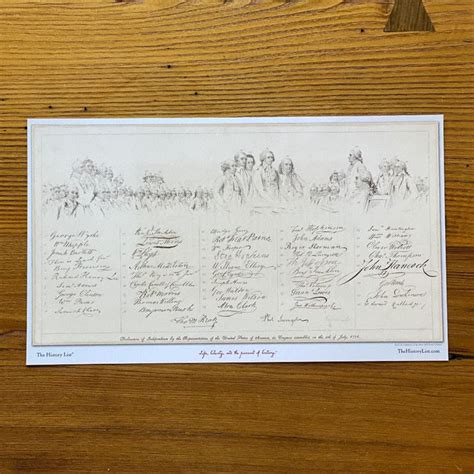 George Wythe
Wm Whipple
Josiah Bartlett
Benj Harrison
Richard Henry Lee
Saml Adams
George Clinton
Wm Paca
Samuel Chase
Lewis Morris
Wm Floyd
Arthur Middleton
Thos Heyward Junr
Charles Carroll of Carrollton
Robt Morris
Thomas Willing
Benjamin Rush
Robt Treat Paine
Step Hopkins
William Ellery
Geo Clymer
Joseph Hewes
Geo Walton
James Wilson
Abra Clark
Phil Livingston
Fras Hopkinson
John Adams
Roger Sherman
Th Jefferson
Benj Franklin
Jno Witherspoon
Saml Huntington
Wm Williams
Oliver Wolcott
Chas Thomson
John Hancock
Geo Read
John Dickinson
Edward Rutledge
Declaration of Independence by the Representatives of the United States of America, in Congress assembled, on the 4th of July 1776.
The History List
Life, Liberty, and the pursuit of history
TheHistoryList.com